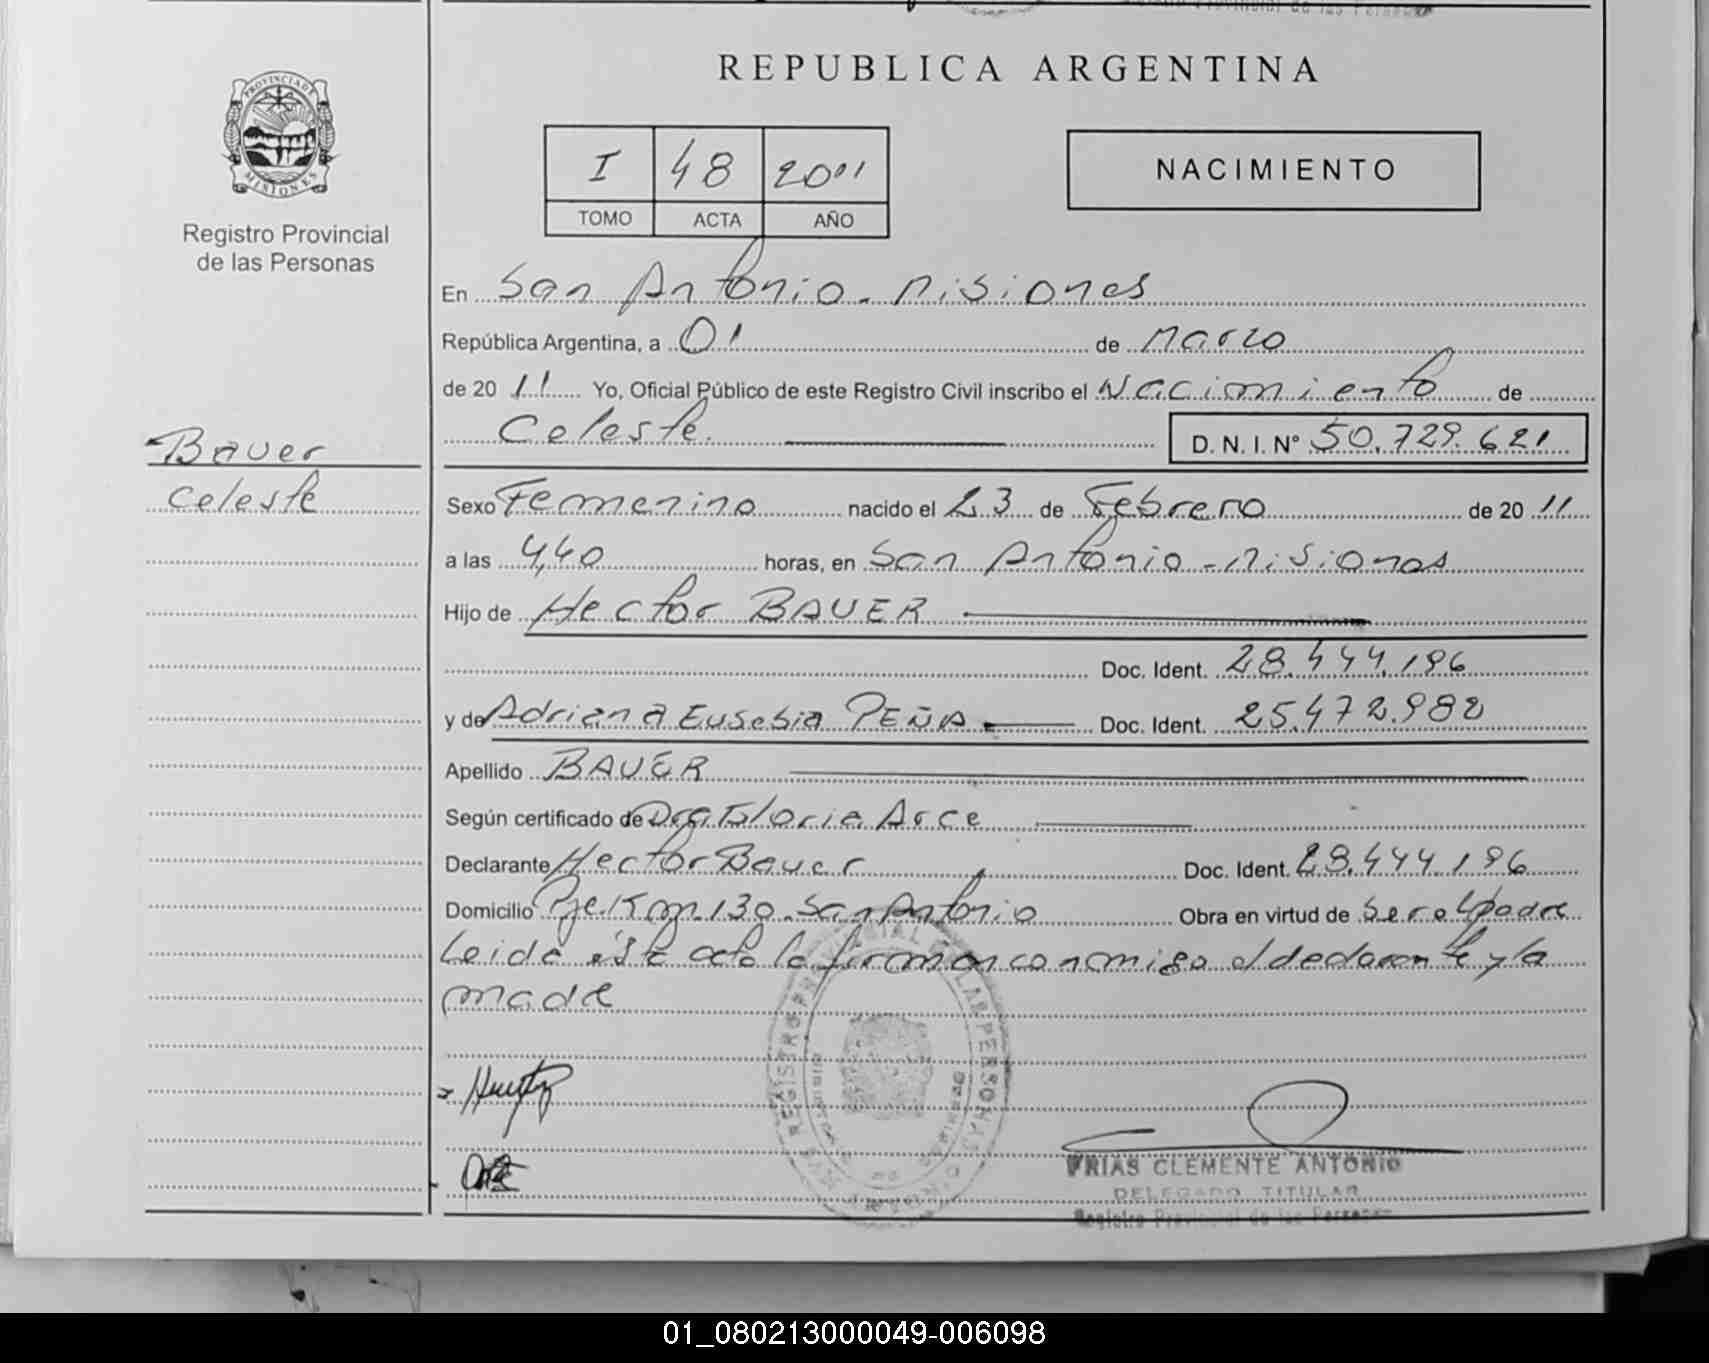 REPUBLICA ARGENTINA
PROVINCIA DE
MISIONES
Registro Provincial
de las Personas
I 48 2011
TOMO ACTA AÑO
NACIMIENTO
En San Antonio - Misiones
República Argentina, a 01 de Marzo
de 20 11 Yo, Oficial Público de este Registro Civil inscribo el Nacimiento de
Celeste. D. N. I. Nº 50.729.621
Bauer
Celeste
Sexo Femenino nacido el 23 de Febrero de 20 11
a las 4,40 horas, en San Antonio - Misiones
Hijo de Hector BAUER
Doc. Ident. 28.444.196
y de Adriana Eusebia PEÑA Doc. Ident. 25.472.982
Apellido BAUER
Según certificado de Dra Gloria Arce
Declarante Hector Bauer Doc. Ident. 28.444.196
Domicilio Pje. Km 130. San Antonio Obra en virtud de Ser el padre
Leida ésta acta la firman conmigo el declarante y la
madre
FRIAS CLEMENTE ANTONIO
DELEGADO TITULAR
Registro Provincial de las Personas
01_080213000049-006098